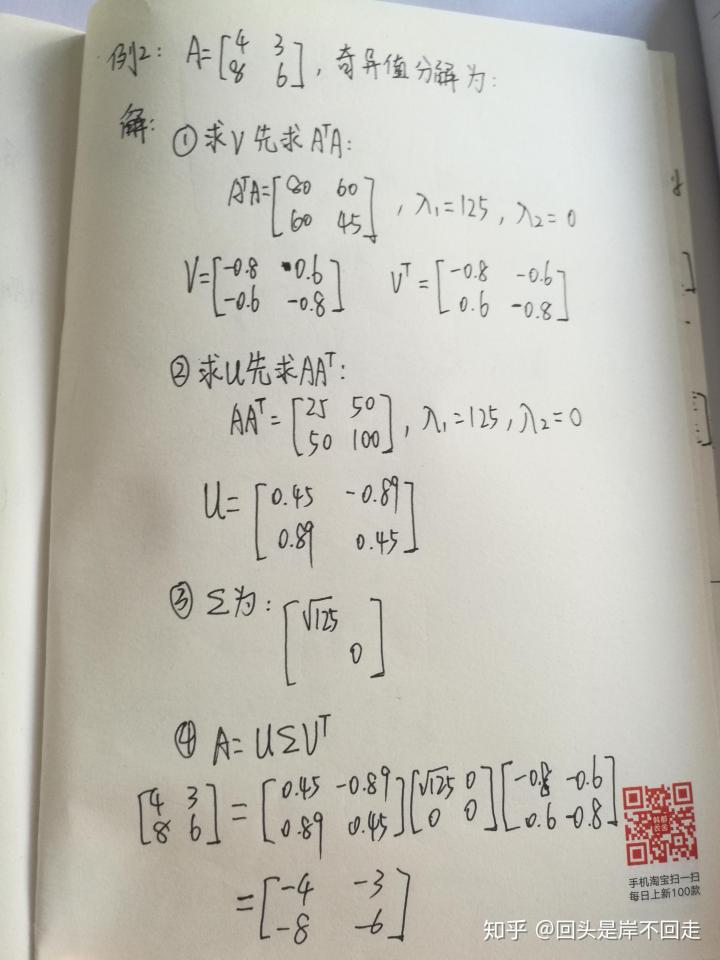 例2: A=[4 3
8 6], 奇异值分解为:
解: ①求V先求AᵀA:
AᵀA=[80 60
60 45], λ₁=125, λ₂=0
V=[-0.8 0.6
-0.6 -0.8] Vᵀ=[-0.8 -0.6
0.6 -0.8]
②求U先求AAᵀ:
AAᵀ=[25 50
50 100], λ₁=125, λ₂=0
U=[0.45 -0.89
0.89 0.45]
③Σ为: [√125
0]
④A=UΣVᵀ
[4 3
8 6]=[0.45 -0.89
0.89 0.45][√125 0
0 0][-0.8 -0.6
0.6 -0.8]
=[-4 -3
-8 -6]
手机淘宝扫一扫
每日上新100款
知乎 @回头是岸不回走